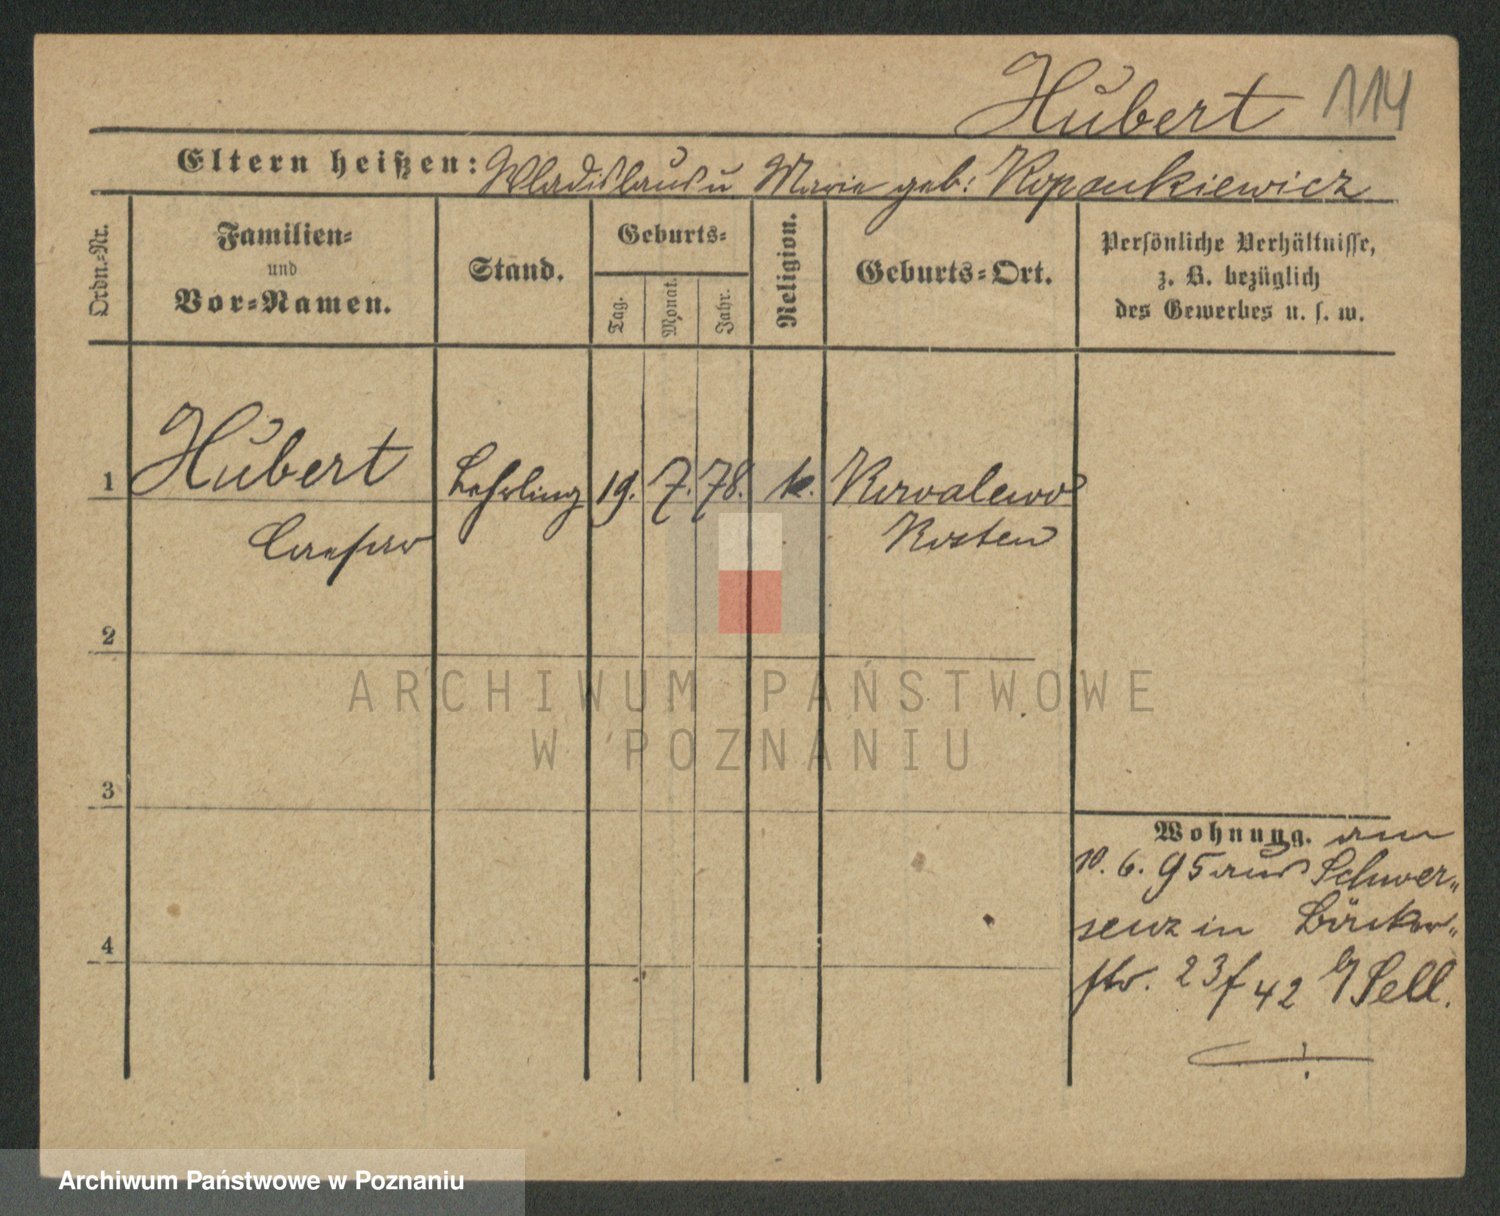 Hubert 114
Eltern heißen: Wladislaus u Marie geb: Kopankiewicz
Ordn.-Nr.
Familien-
und
Vor-Namen.
Stand.
Geburts-
Tag.
Monat.
Jahr.
Religion.
Geburts-Ort.
Persönliche Verhältnisse,
z. B. bezüglich
des Gewerbes u. s. w.
1 Hubert Lehrling 19. 7. 78. k. Kowalewo
Caesar Kosten
2
ARCHIWUM PAŃSTWOWE
W POZNANIU
3
Wohnung. am
10. 6. 95 aus Schwer-
senz in Bäcker-
4
str. 23 42 Sell.
Archiwum Państwowe w Poznaniu